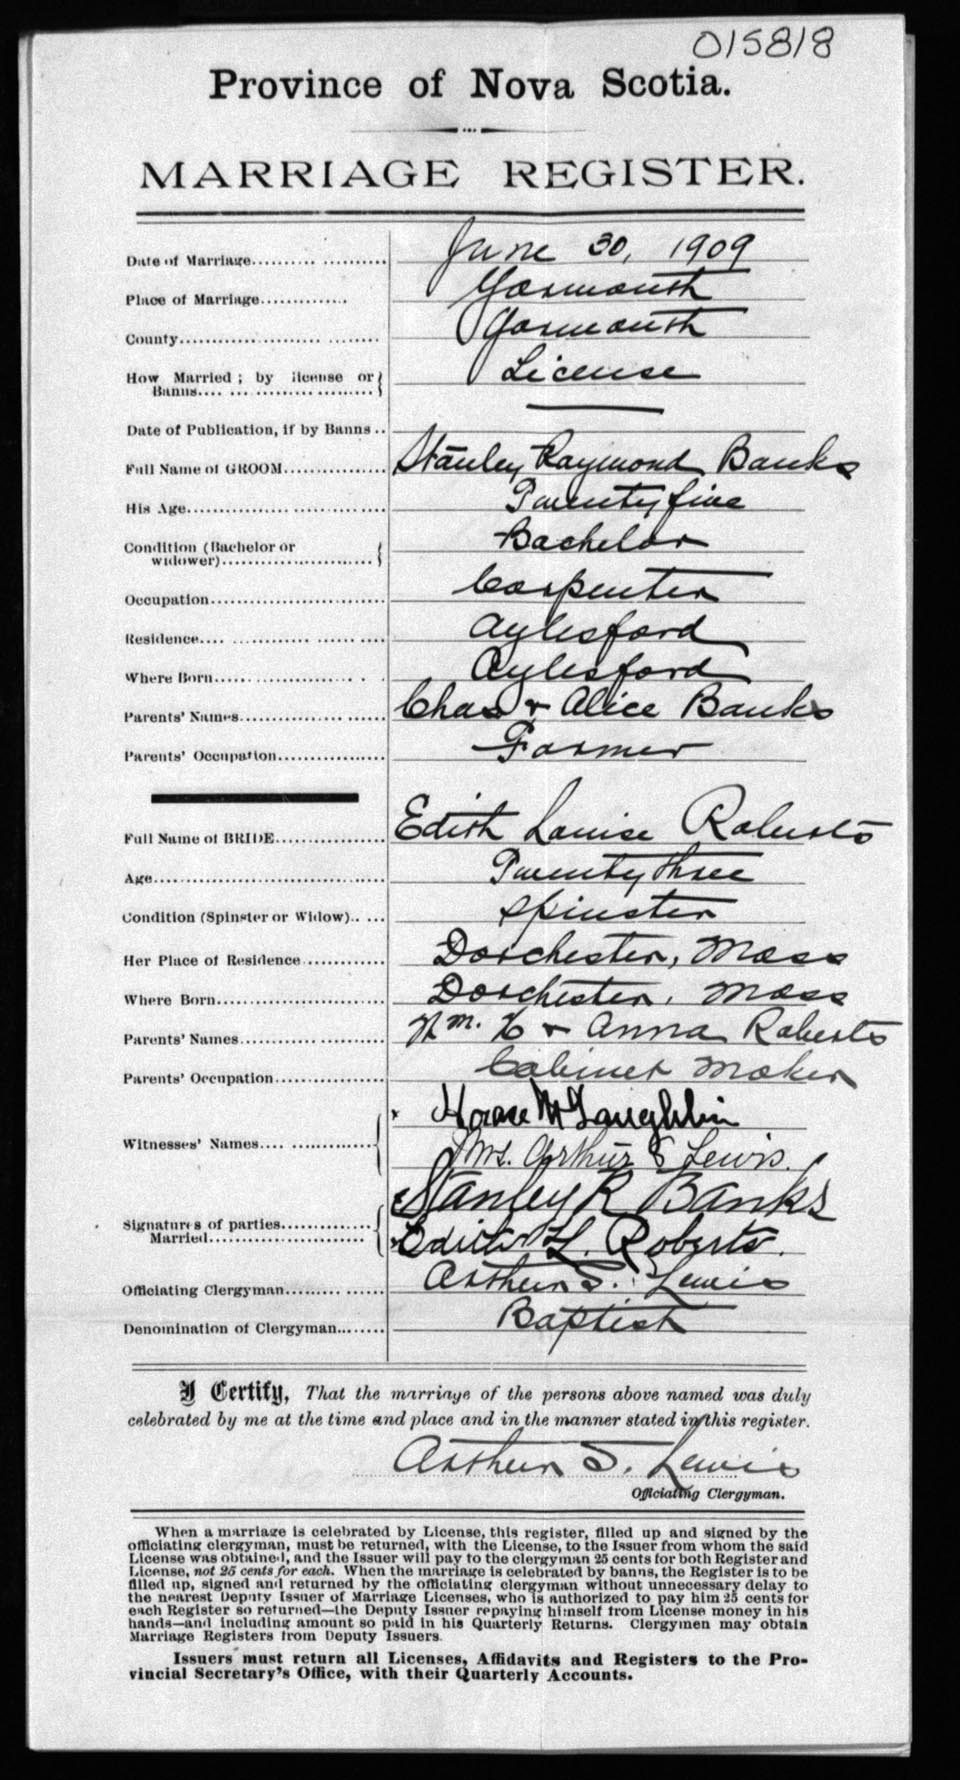 015818
Province of Nova Scotia.
MARRIAGE REGISTER.
Date of Marriage.................. June 30, 1909
Place of Marriage............. Yarmouth
County............................ Yarmouth
How Married; by license or Banns.................. License
Date of Publication, if by Banns .. —
Full Name of GROOM............... Stanley Raymond Banks
His Age............................ Twenty five
Condition (Bachelor or widower)....................... Bachelor
Occupation......................... Carpenter
Residence.................. Aylesford
Where Born.................. Aylesford
Parents' Names..................... Chas & Alice Banks
Parents' Occupation................ Farmer
Full Name of BRIDE................ Edith Louise Roberts
Age................................ Twenty three
Condition (Spinster or Widow)...... Spinster
Her Place of Residence............ Dorchester, Mass
Where Born........................ Dorchester, Mass
Parents' Names..................... Wm. H & Anna Roberts
Parents' Occupation................ Cabinet Maker
Witnesses' Names.................. x Horace McLaughlin
Mrs. Arthur S Lewis.
Signatures of parties.............. Stanley R Banks
Married....................... x Edith L. Roberts.
Officiating Clergyman............... Arthur S. Lewis
Denomination of Clergyman........ Baptist
I Certify, That the marriage of the persons above named was duly
celebrated by me at the time and place and in the manner stated in this register.
Arthur S. Lewis
Officiating Clergyman.
When a marriage is celebrated by License, this register, filled up and signed by the
officiating clergyman, must be returned, with the License, to the Issuer from whom the said
License was obtained, and the Issuer will pay to the clergyman 25 cents for both Register and
License, not 25 cents for each. When the marriage is celebrated by banns, the Register is to be
filled up, signed and returned by the officiating clergyman without unnecessary delay to
the nearest Deputy Issuer of Marriage Licenses, who is authorized to pay him 25 cents for
each Register so returned—the Deputy Issuer repaying himself from License money in his
hands—and including amount so paid in his Quarterly Returns. Clergymen may obtain
Marriage Registers from Deputy Issuers.
Issuers must return all Licenses, Affidavits and Registers to the Pro-
vincial Secretary's Office, with their Quarterly Accounts.